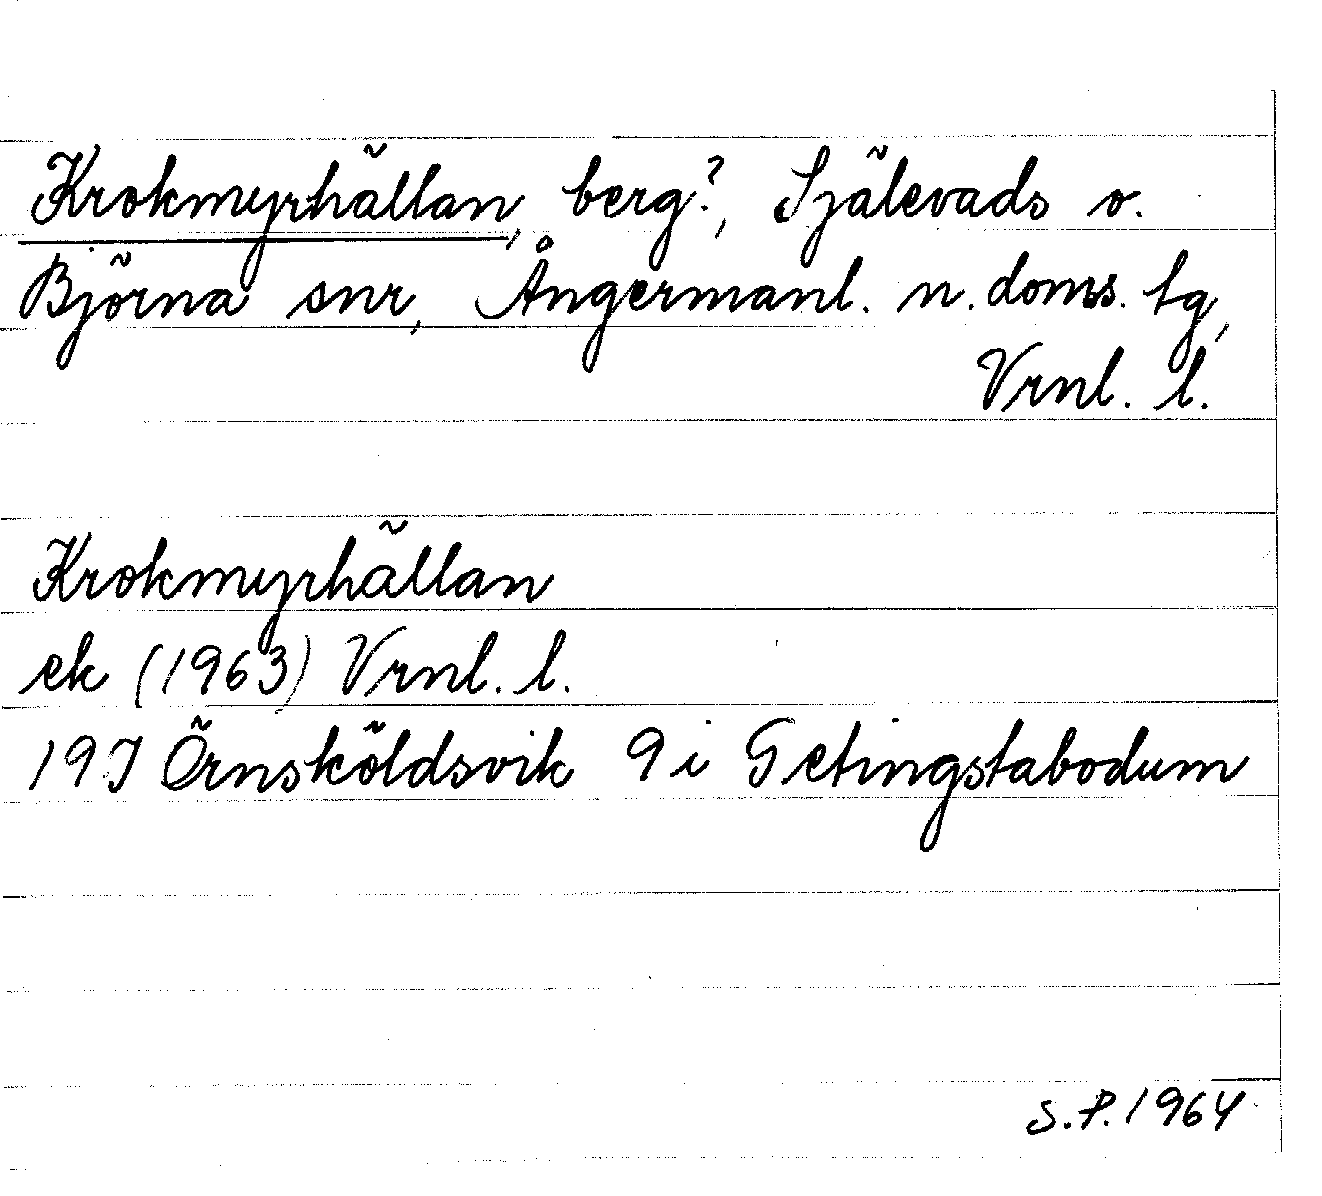 Krokmyrhällan, berg?, Själevads o.
Björna snr, Ångermanl. n. doms. tg,
Vrnl. l.
Krokmyrhällan
ek (1963) Vrnl. l.
19J Örnsköldsvik 9 i Getingstabodum
S.P. 1964